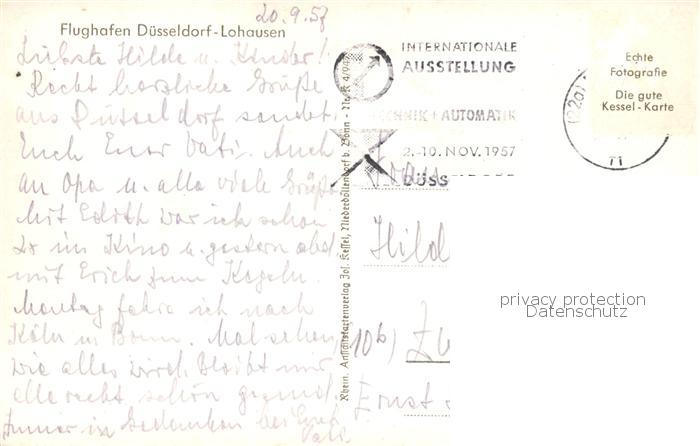 20.9.57
Flughafen Düsseldorf-Lohausen
Liebste Hilde u. Kinder!
Recht herzliche Grüße
aus Düsseldorf sendet
Euch Euer Vati. Auch
an Opa u. alle viele Grüße
Mit Edith war ich schon
im Kino u. gestern abd
mit Erich zum Kegeln.
Montag fahre ich nach
Köln u. Bonn. Mal sehen
wie alles wird. Bleibt mir
alle recht schön gesund.
Immer in Gedanken bei Euch
Vati
Rhein. Ansichtskartenverlag Jos. Kessel, Niederdollendorf b. Bonn
INTERNATIONALE
AUSSTELLUNG
TECHNIK + AUTOMATIK
2.-10. NOV. 1957
DÜSS
(22a)
Echte
Fotografie
Die gute
Kessel-Karte
Frau
Hild
(10b) Zw
Ernst
privacy protection
Datenschutz